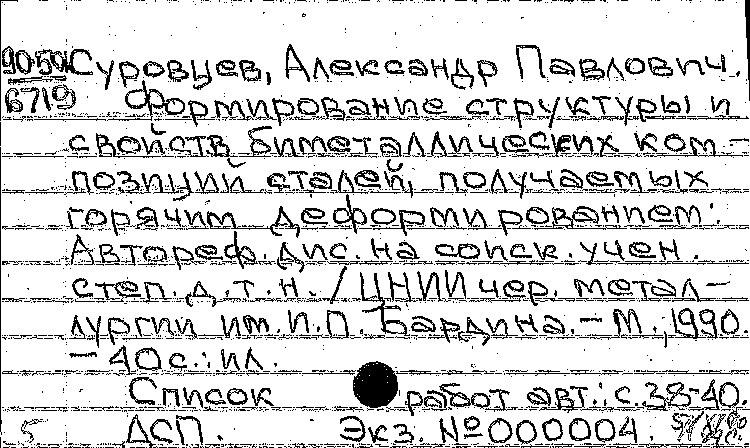 90-50 Суровцев, Александр Павлович.
6719 Формирование структуры и
свойств биметаллических ком-
позиций сталей, получаемых
горячим деформированием:
Автореф. дис. на соиск. учен.
степ. д.т.н. / ЦНИИ чер. метал-
лургии им. И.П. Бардина. - М., 1990.
- 40 с.: ил.
Список работ авт.: с. 38-40.
5 ДСП. Экз. № 000004.